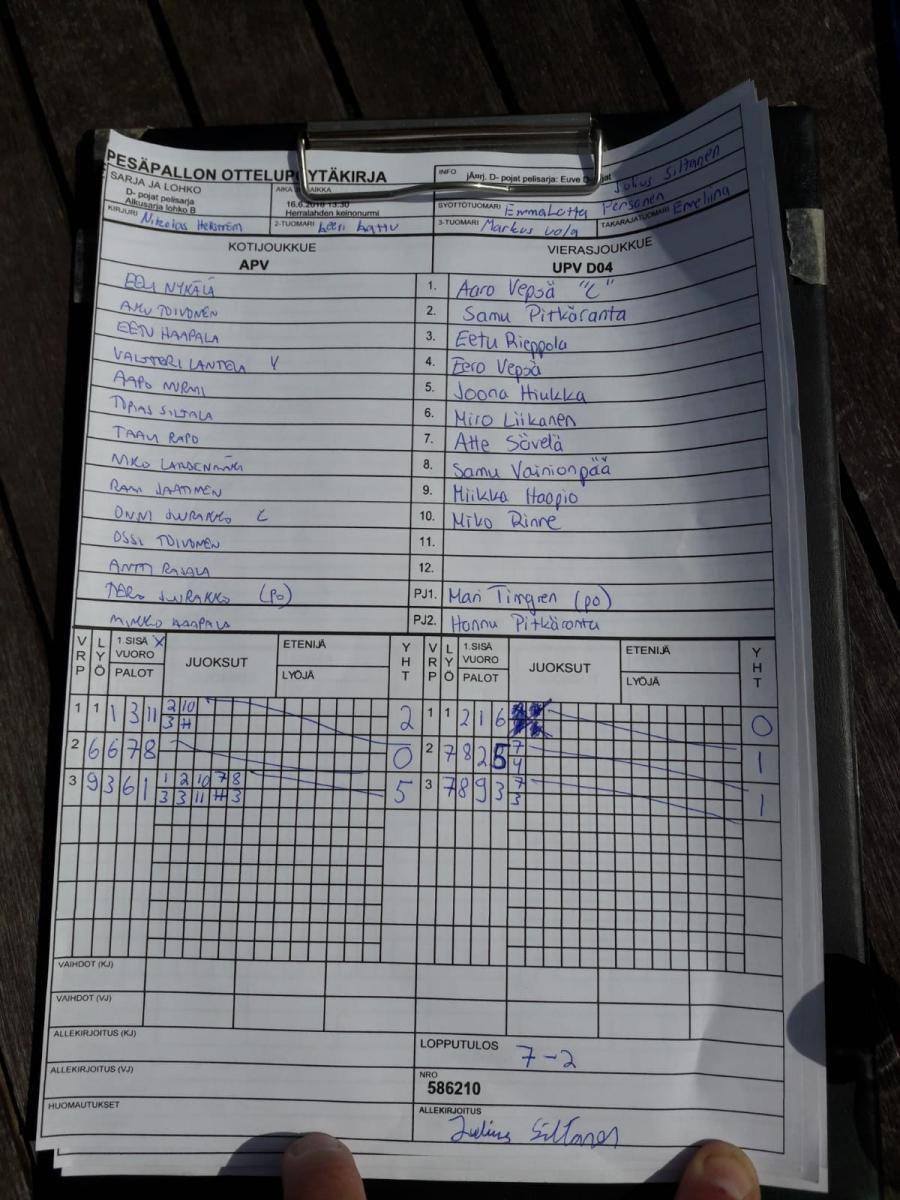 PESÄPALLON OTTELUPÖYTÄKIRJA
SARJA JA LOHKO
D- pojat pelisarja
Alkusarja lohko B
16.6.2016 13:30
Herralahden keinonurmi
INFO jÄnrj. D- pojat pelisarja: Euve
Julius Siltanen
KIRJURI Nikolas Hekström
2-TUOMARI
SYÖTTÖTUOMARI EmmaLotta Personen
3-TUOMARI Markus
TAKARAJATUOMARI Emeliina
KOTIJOUKKUE
APV
VIERASJOUKKUE
UPV D04
EELI NYKÄLÄ 1. Aaro Vepsä "C"
AKU TOIVONEN 2. Samu Pitkäranta
EETU HAAPALA 3. Eetu Rieppola
VALTTERI LANTELA V 4. Eero Vepsä
AAPO NURMI 5. Joona Hiukka
TOPIAS SILTALA 6. Miro Liikanen
TAAVI RAPO 7. Atte Sävelä
NIKO LAHDENMÄKI 8. Samu Vainionpää
RAMI JAATINEN 9. Miikka Haapio
ONNI JUURAKKO C 10. Miko Rinne
OSSI TOIVONEN 11.
ANTTI RAJALA 12.
TERO JUURAKKO (PO) PJ1. Mari Timgren (po)
MIKKO HAAPALA PJ2. Hannu Pitkäranta
VRP LYÖ 1.SISÄ X VUORO PALOT JUOKSUT ETENIJÄ LYÖJÄ YHT VRP LYÖ 1.SISÄ VUORO PALOT JUOKSUT ETENIJÄ LYÖJÄ YHT
1 1 1 3 11 2 10 2 1 1 2 1 6 0
3 H
2 6 6 7 8 0 2 7 8 2 5 7 1
4
3 9 3 6 1 1 2 10 7 8 5 3 7 8 9 3 7 1
3 3 11 H 3 3
VAIHDOT (KJ)
VAIHDOT (VJ)
ALLEKIRJOITUS (KJ)
LOPPUTULOS 7-2
ALLEKIRJOITUS (VJ)
NRO
586210
HUOMAUTUKSET
ALLEKIRJOITUS
Julius Siltanen